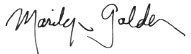 Marilyn Golden